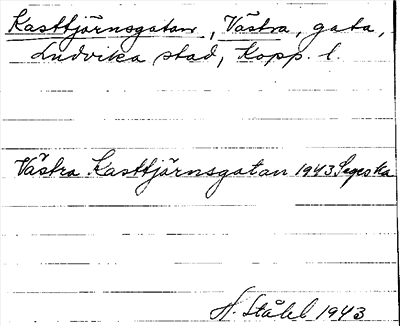 Kasttjärnsgatan, Västra, gata,
Ludvika stad, Kopp. l.
Västra Kasttjärnsgatan 1943
H. Ståhl 1943